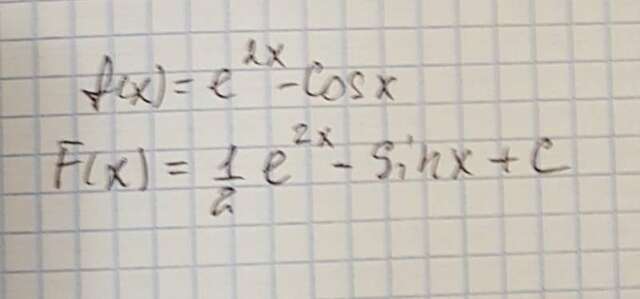 f(x) = e^{2x} - cos x
F(x) = \frac{1}{2} e^{2x} - sin x + C